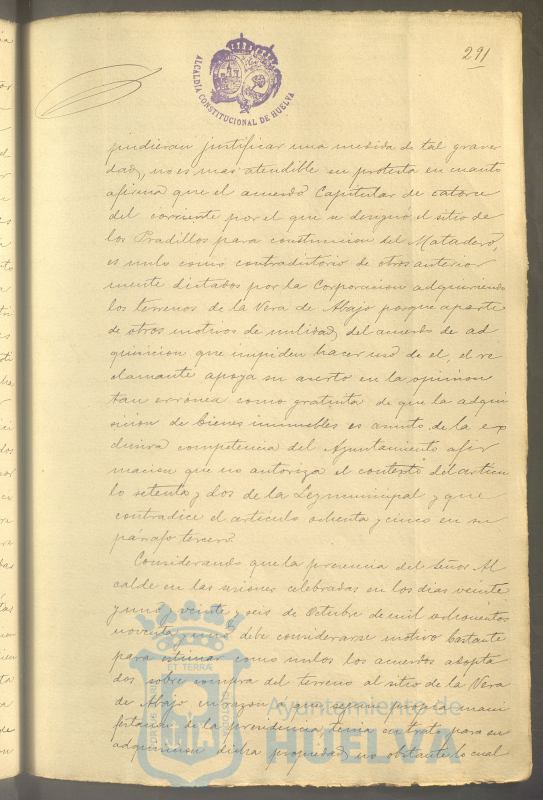 291
ALCALDIA CONSTITUCIONAL DE HUELVA
pudieran justificar una medida de tal grave
dad, no es mas atendible su protesta en cuanto
afirma que el acuerdo Capitular de catorce
del corriente por el que se designó el sitio de
los Pradillos para construccion del Matadero,
es nulo como contradictorio de otros anterior
mente dictados por la Corporacion adquiriendo
los terrenos de la Vera de Abajo porque aparte
de otros motivos de nulidad, del acuerdo de ad
quisicion que impiden hacer uso de el, el re
clamante apoya su aserto en la opinion
tan erronea como gratuita de que la adqui
sicion de bienes inmuebles es asunto de la ex
clusiva competencia del Ayuntamiento afir
macion que no autoriza el contexto del articu
lo setenta y dos de la Ley municipal y que
contradice el articulo ochenta y cinco en su
párrafo tercero.
Considerando que la presencia del Señor Al
calde en las sesiones celebradas en los dias veinte
y uno y veinte y seis de Octubre de mil ochocientos
noventa y uno debe considerarse motivo bastante
para estimar como nulos los acuerdos adopta
dos sobre compra del terreno al sitio de la Vera
de Abajo en razon a que segun propia mani
festacion de la presidencia tenia contrato para su
adquisicion dicha propiedad, no obstante lo cual
ET TERRA
Ayuntamiento de
HUELVA